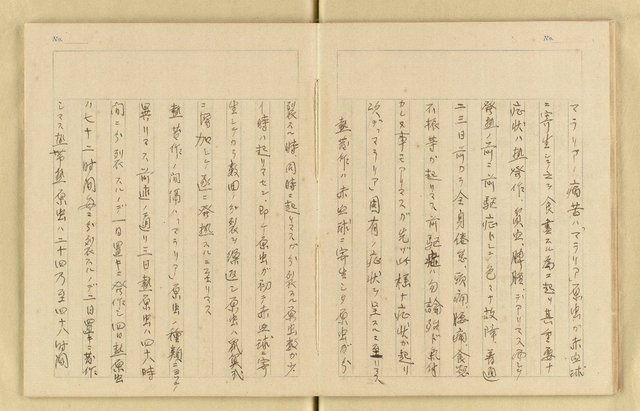 No.
マラリアノ病苦ハ「マラリア」原虫ガ赤血球
ニ寄生シテ之ヲ食害スル為ニ起リ其ノ重ナ
症状ハ熱発作、貧血、脾腫デアリマス
発熱ノ前ニ前駆症トシテ色々ナ故障、普通
二三日前カラ全身倦怠、頭痛、腰痛、食慾
不振等ガ起リマス前駆症ハ勿論殆ド気付
カレヌ事モアリマスガ先ヅ此様ナ症状ガ起リ
「マラリア」固有ノ症状ヲ呈スルニ至リマス
熱発作ハ赤血球ニ寄生シタ原虫ガ分
No.
裂スル時、同時ニ起リマスガ分裂スル原虫数ガ少
イ時ハ起リマセン、即チ原虫ガ初テ赤血球ニ寄
生シテカラ数回分裂ヲ繰返シ原虫ハ幾何式
ニ増加シテ遂ニ発熱スルニ至リマス
熱発作ノ間隔ハ「マラリア」原虫ノ種類ニヨリ
異リマス、前述ノ通リ三日熱原虫ハ四十八時
間ニ分裂スルノデ一日置キニ発作シ四日熱原虫
ハ七十二時間毎ニ分裂スルノデ二日置キニ発作
シマス熱帯熱原虫ハ二十四乃至四十八時間